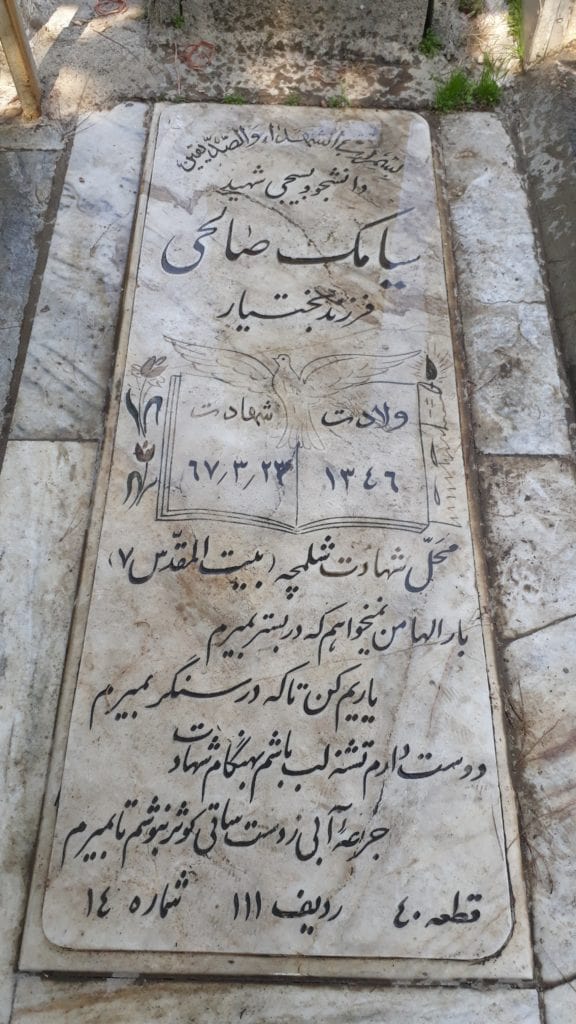 بسم رب الشهداء والصدیقین
دانشجو بسیجی شهید
سیامک صالحی
فرزند بختیار
ولادت شهادت
۱۳۴۶ ۶۷٫۳٫۲۳
محل شهادت شلمچه (بیت المقدس ۷)
بار الها من نمیخواهم که در بستر بمیرم
یاریم کن تا که در سنگر بمیرم
دوست دارم تشنه لب باشم بهنگام شهادت
جرعهٔ آبی ز دست ساقی کوثر بنوشم تا بمیرم
قطعه ۴۰ ردیف ۱۱۱ شماره ۱۴